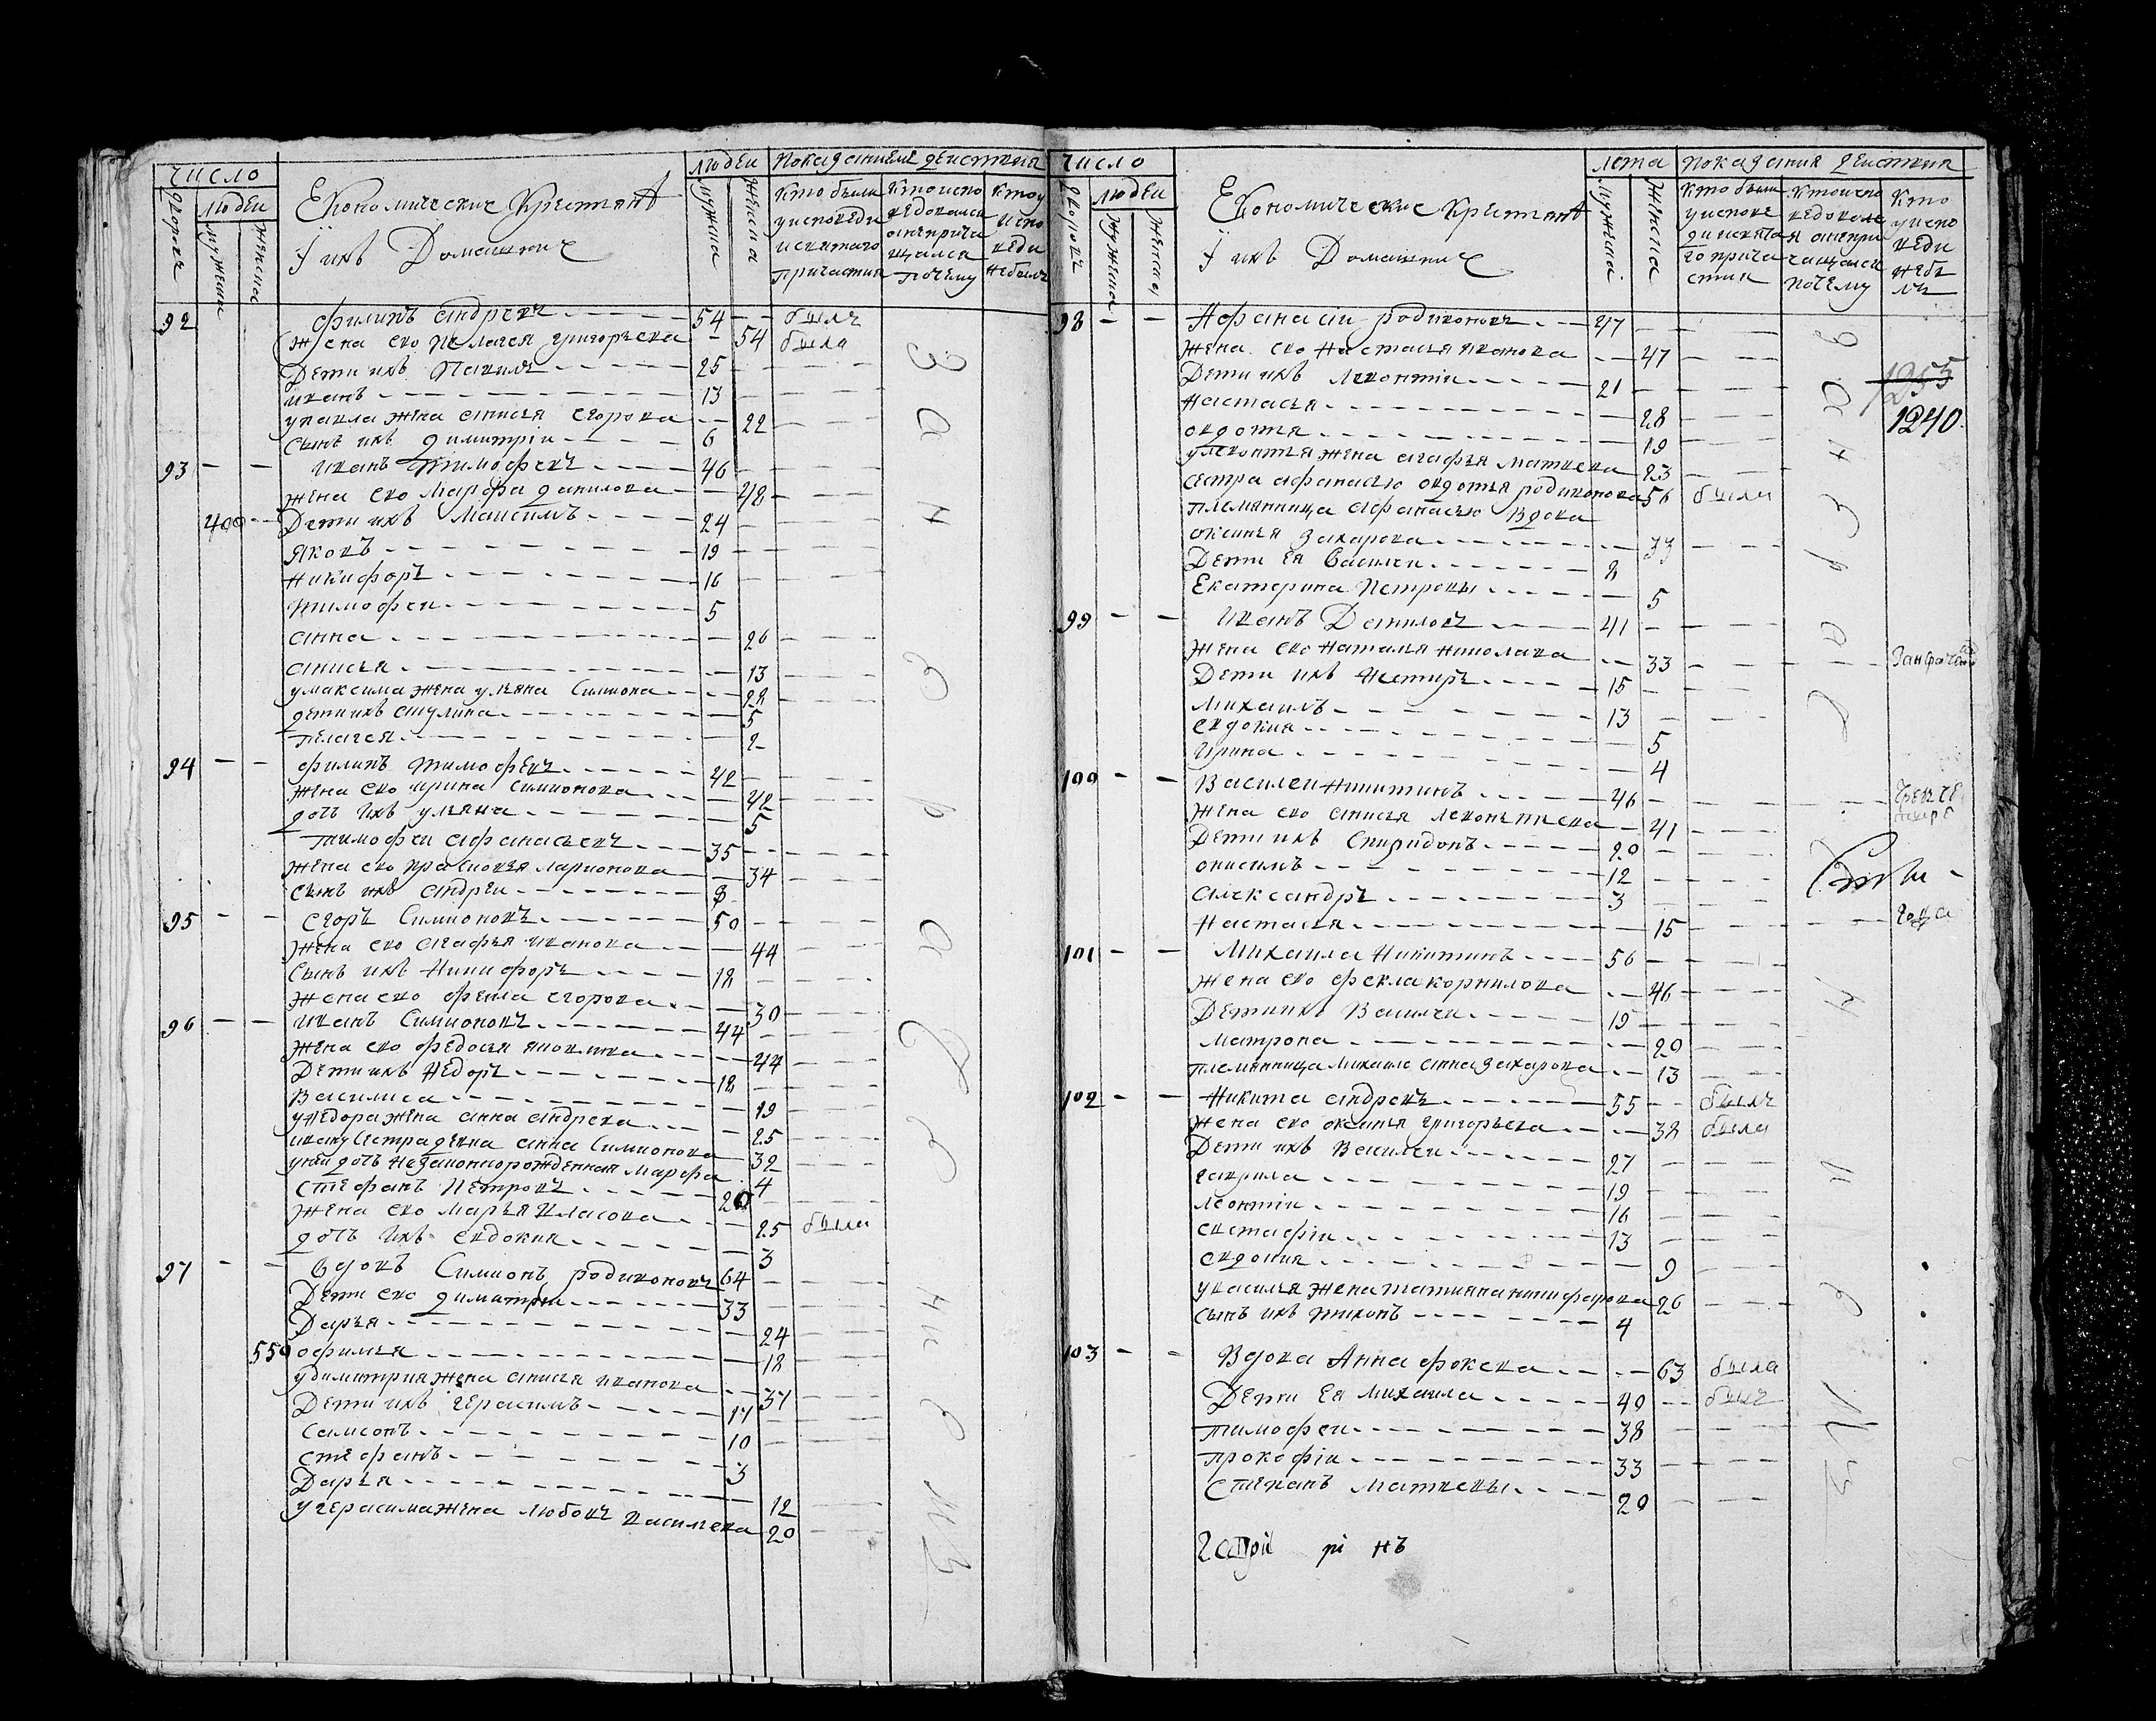 число
людеи
Показаниемъ деиствия
дворовъ
людеи
мужеска
женска
Економические Крестьяня
Ї ихъ Домашние
мужска
женска
Кто были
у исповеди
и святаго
причастия
Кто испо
ведовался
а не прича
щался
почему
Кто у
испо
веди
не былъ
92 филипъ андревъ 54 былъ
Жена ево пелагея григорьева 54 была
Дети ихъ Павилъ 25
иванъ 13
у павла жена анисья егорова 22
Сынъ ихъ димитрiи 6
93 иванъ тимофевъ 46
жена ево марфа данилова 48
400 Дети ихъ Максимъ 24
яковъ 19
никифоръ 16
тимофеи 5
анна 26
анисья 13
у максима жена ульяна Симионова 28
дети ихъ акулина 5
пелагея 2
94 филипъ тимофевъ 42
жена ево ирина Симионова 42
дочь ихъ ульяна 5
тимофеи афанасьевъ 35
жена ево прасковья ларионова 34
сынъ ихъ андреи 8
95 егоръ Симионовъ 50
жена ево агафья иванова 44
Сынъ ихъ никифоръ 18
жена ево фекла егорова 30
96 иванъ Симионовъ 44
жена ево федосья яковлева 44
Дети ихъ Федоръ 18
Василиса 19
у Федора жена анна андрева 25
ивану сестра девка анна Симионова 32
у неи дочь незаконнорожденная марфа 4
стефанъ Петровъ 26
жена ево марья власова 25 была
дочь ихъ евдокия 3
97 Вдовъ Симионъ родивоновъ 64
Дети ево димитрiи 33
Дарья 24
550 офимья 18
у димитрия жена анисья иванова 37
Дети ихъ герасимъ 17
Самсонъ 10
стефанъ 3
Дарья 12
у герасима жена любовь васильева 20
число
лета
показания деиствия
дворовъ
людеи
мужеска
женска
Економические Крестьяня
Ї ихъ Домашние
мужеска
женска
Кто были
у испове
ди и свята
го прича
стия
Кто испо
ведовалс
я а непри
чащался
почему
Кто
у испо
веди
не бы
лъ
98 Афанасiи родивоновъ 47
жена ево Настасья иванова 47
Дети ихъ леонтiи 21
1255
настасья 28
1240
овдотья 19
у леонтья жена агафья матвева 23
сестра афанасью овдотья родивонова 56 была
племянница афанасью Вдова
оксинья захарова 33
Дети ея Василеи 8
Екатерина Петровы 5
99 иванъ Даниловъ 41
жена ево наталья николаева 33
Дети ихъ нестиръ 15
михаилъ 13
евдокия 5
ирина 4
100 Василеи никитинъ 46
жена ево анисья леонтьева 41
Дети ихъ Спиридонъ 20
онисимъ 12
александръ 3
Настасья 15
101 Михаила Никитинъ 56
жена ево фекла корнилова 46
Дети ихъ Василеи 19
матрона 20
племянница михаиле анна захарова 13
102 Никита андревъ 55 былъ
жена ево оксинья григорьева 38 была
Дети ихъ Василеи 27
гаврила 19
леонтiи 16
евстафiи 13
евдокия 9
у василья жена татияна никифарова 26
сынъ ихъ тихонъ 4
103 Вдова Анна фокева 63 была
Дети ея михаила 40 былъ
тимофеи 38
прокофiи 33
Степанъ матвевы 20